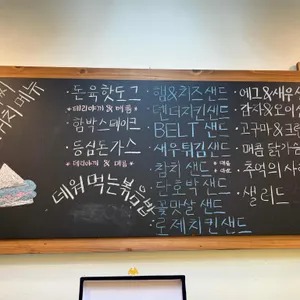 메뉴
· 돈육핫도그
* 데리야끼 & 매콤
· 함박스테이크
· 등심돈가스
* 데리야끼 & 매콤
데워먹는볶음밥
· 햄&치즈샌드
· 텐더치킨샌드
· BELT 샌드
· 새우튀김샌드
· 참치 샌드
· 단호박샌드
· 꽃맛살 샌드
· 로제치킨샌드
· 에그&새우
· 감자&오이
· 고구마&크
· 매콤 닭가슴
· 추억의 사라
· 샐러드